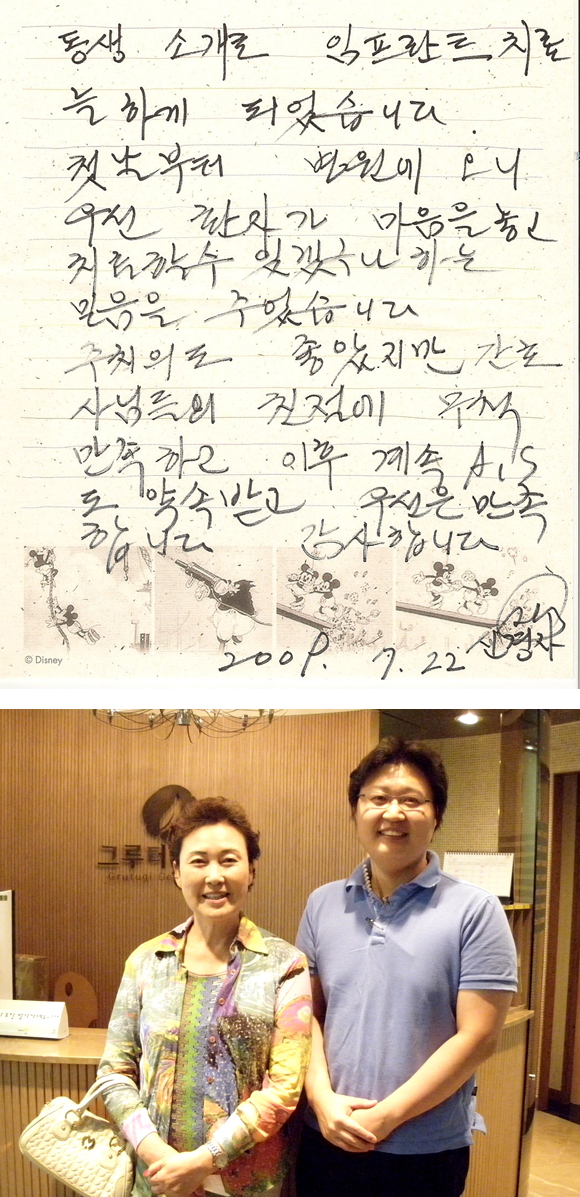 동생 소개로 임프란트 치료
를 하게 되었습니다.
첫날부터 병원에 오니
우선 환자가 마음을 놓고
치료할수 있겠구나 하는
믿음을 주었습니다
주치의도 좋았지만 간호
사님들의 친절에 무척
만족하고 이후 계속 A,S
도 약속받고 우선은 만족
합니다 감사합니다
© Disney
2009. 7. 22 신경자
그루터
Grutugi